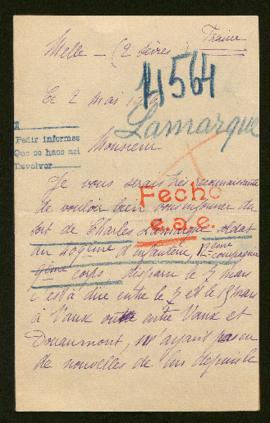 Melle - (2 Sèvres) France
4564
Le 2 mai 19
Lamarque
A
Pedir informes
Que se hace aci
Devolver
Monsieur
Je vous serais très reconnaissante
de vouloir bien vous informer du
Fecho
sort de Charles Lamarque soldat
e.a.e.
du 409ème d'infanterie, 12ème compagnie
corps disparu le 7 mars
c'est à dire entre le 7 et le 13 mars
à Vaux entre Vaux et
Douaumont, n'ayant pas eu
de nouvelles de lui depuis le